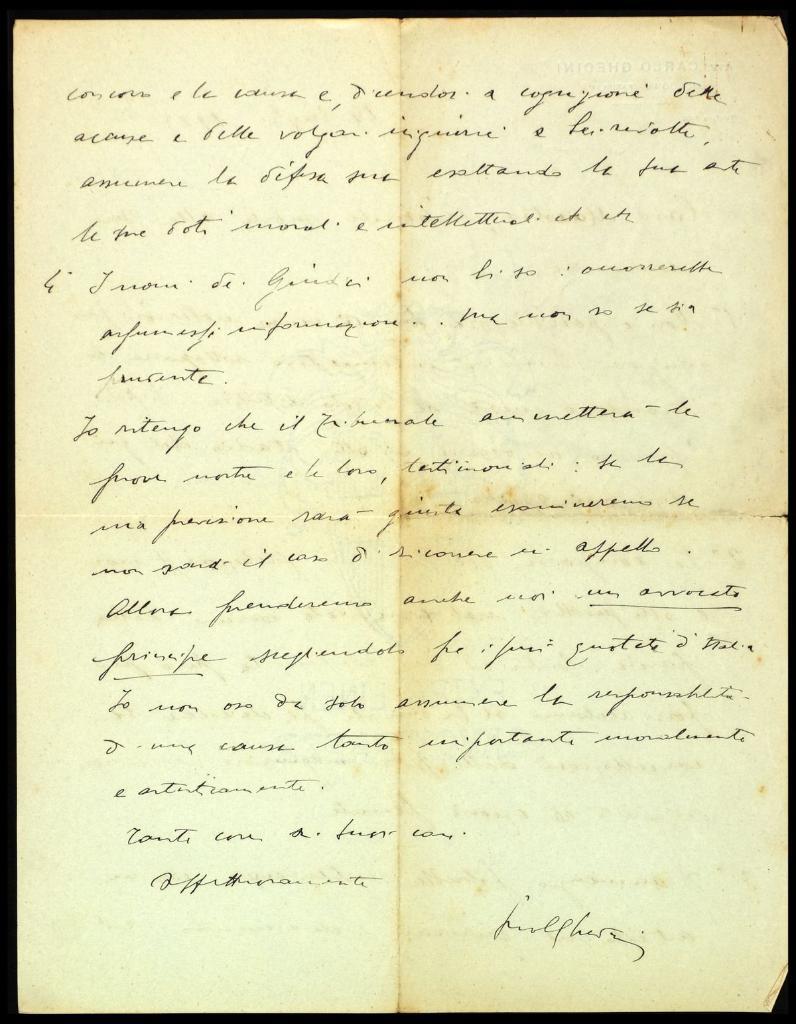 concorso e la causa e, dicendosi a cognizione delle
accuse e delle volgari ingiurie a Lei rivolte,
assumere la difesa sua esaltando la sua arte
le sue doti morali e intellettuali etc etc
4° I nomi dei Giudici non li so: occorrerebbe
assumessi informazioni.. ma non so se sia
prudente.
Io ritengo che il Tribunale ammetterà le
prove nostre e le loro, testimoniali: se la
mia previsione sarà giusta esamineremo se
non sarà il caso di ricorrere in appello.
Allora prenderemo anche noi un avvocato
principe scegliendolo fra i più quotati d'Italia
Io non oso da solo assumere la responsabilità
di una causa tanto importante moralmente
e artisticamente.
Tante cose ai suoi cari.
Affettuosamente
Ghedini